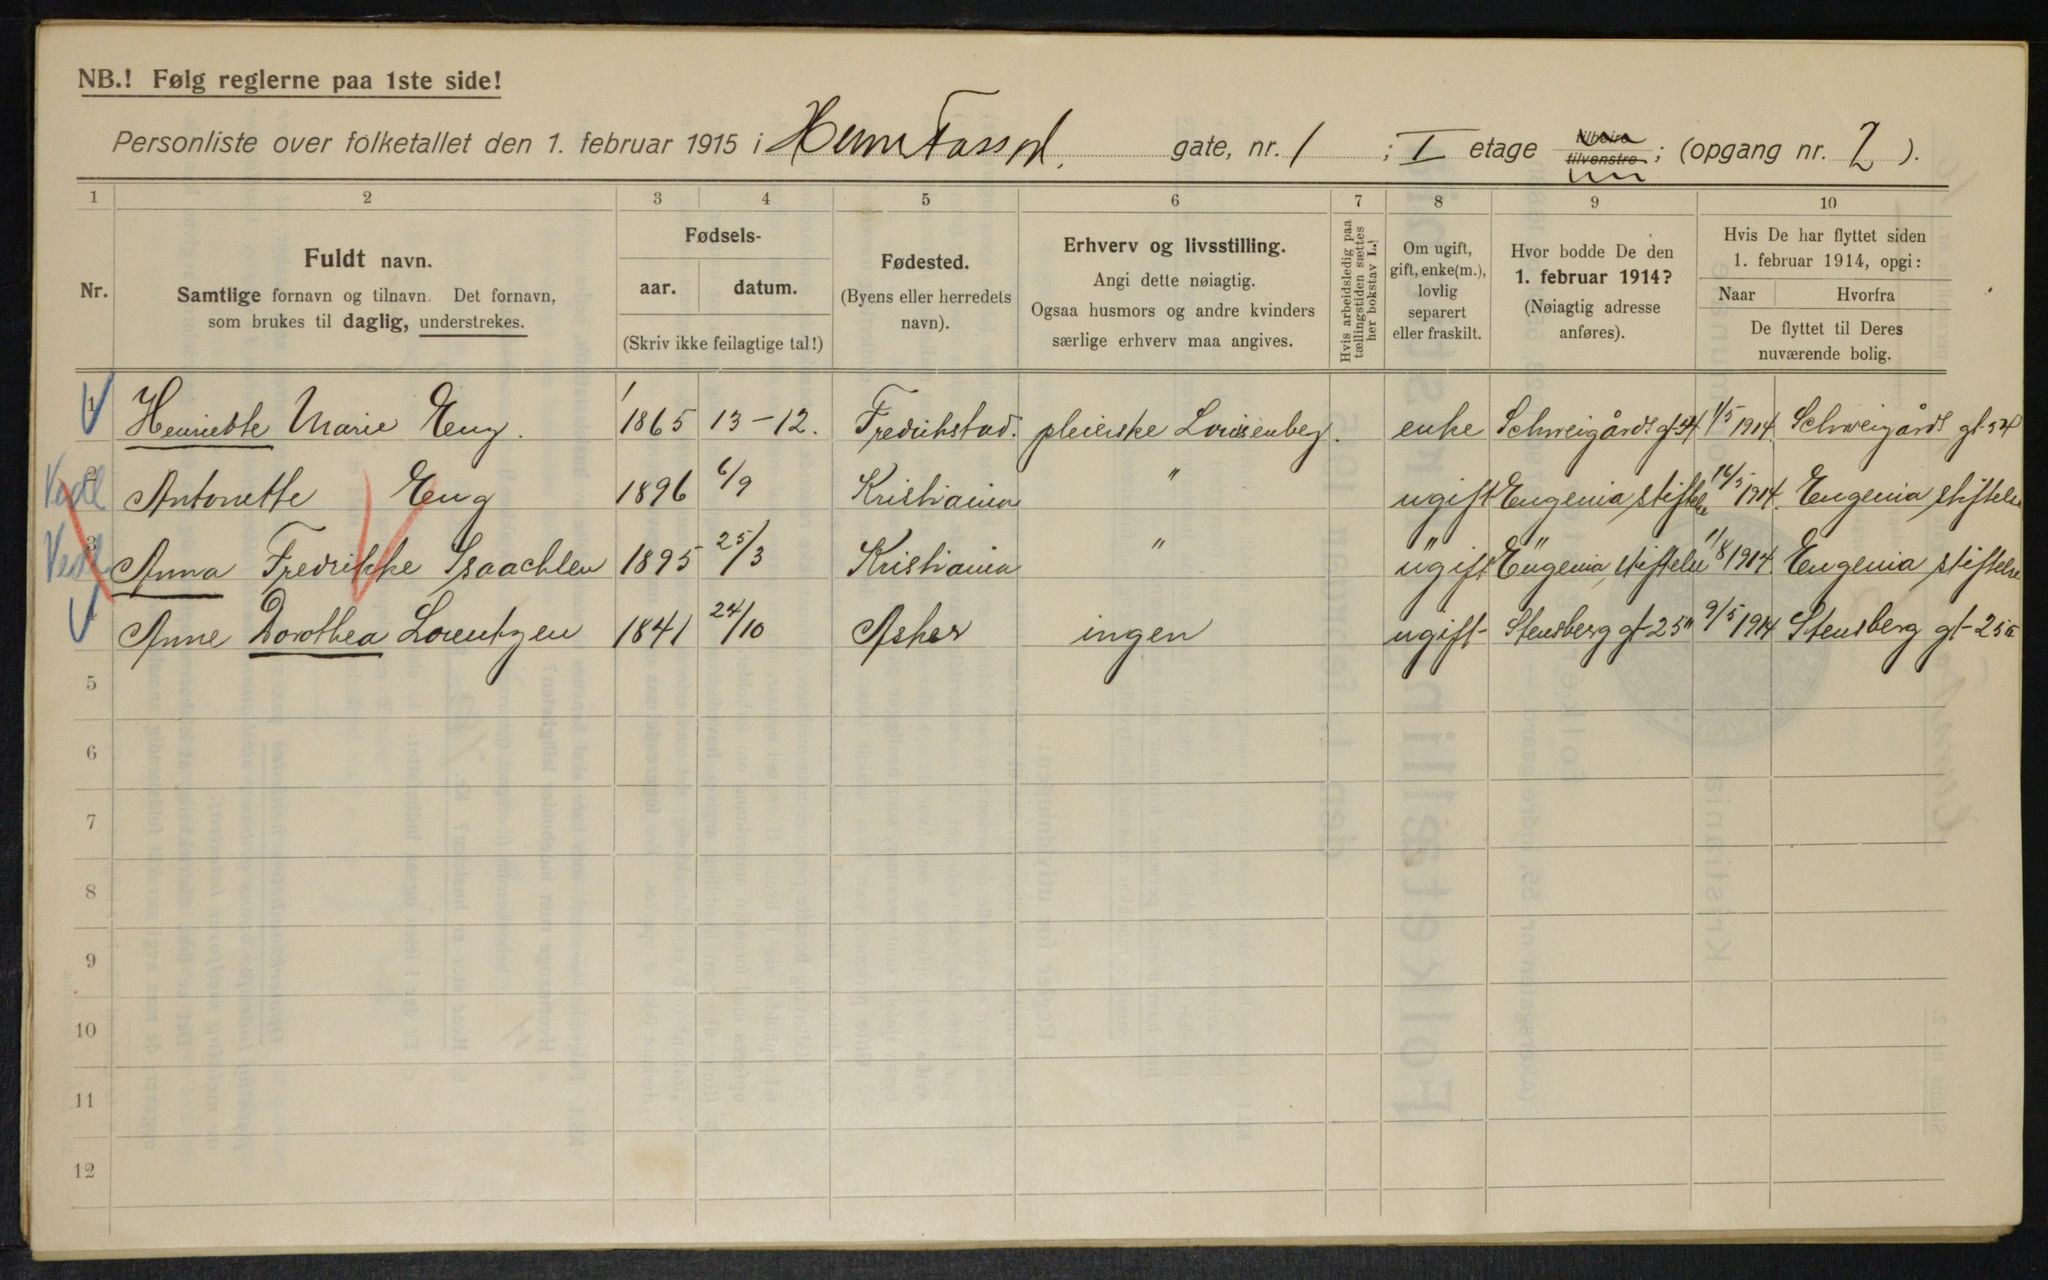 NB.! Følg reglerne paa 1ste side!
Personliste over folketallet den 1. februar 1915 i gate, nr. 1 ; I etage tilhøire tilvenstre ; (opgang nr. 2 ).
1 2 3 4 5 6 7 8 9 10
Nr.
Fuldt navn.
Samtlige fornavn og tilnavn. Det fornavn,
som brukes til daglig, understrekes.
Fødsels-
aar. datum.
(Skriv ikke feilagtige tal!)
Fødested.
(Byens eller herredets
navn).
Erhverv og livsstilling.
Angi dette nøiagtig.
Ogsaa husmors og andre kvinders
særlige erhverv maa angives.
Hvis arbeidsledig paa
tællingstiden sættes
her bokstav L.!
Om ugift,
gift, enke(m.),
lovlig
separert
eller fraskilt.
Hvor bodde De den
1. februar 1914?
(Nøiagtig adresse
anføres).
Hvis De har flyttet siden
1. februar 1914, opgi:
Naar Hvorfra
De flyttet til Deres
nuværende bolig.
1 Henriette Marie Eng. 1865 13-12. Fredrikstad. pleierske Louisenberg. enke Schweigårds gt 54 1/5 1914 Schweigårds gt 54
2 Antonette Eng 1896 6/9 Kristiania " ugift Eugenia stiftelse 16/5 1914. Eugenia stiftelse
3 Anna Fredrikke Isaachsen 1895 25/3 Kristiania " ugift Eugenia stiftelse 11/8 1914. Eugenia stiftelse
4 Anne Dorothea Lorentzen 1841 24/10 Asker ingen ugift Stensberg gt 25a 9/5 1914 Stensberg gt 25a
5
6
7
8
9
10
11
12